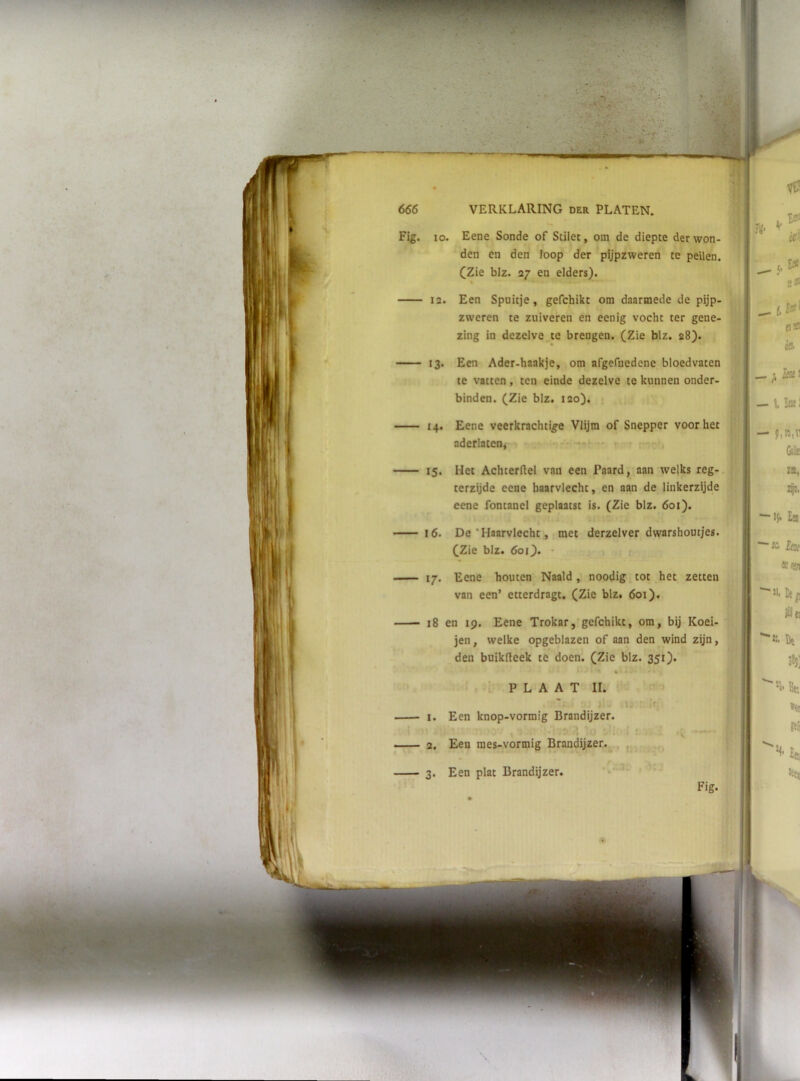 666 VERKLARING DER PLATEN.
Fig. 10. Eene Sonde of Stilet, om de diepte der won-
den en den loop der pijpzweren te peilen.
(Zie blz. 27 en elders).
—— 12. Een Spuitje, geſchikt om daarmede de pijp-
zweren te zuiveren en eenig vocht ter gene-
zing in dezelve te brengen. (Zie blz. 28).
—— 13. Een Ader-haakje, om afgeſnedene bloedvaten
te vatten, ten einde dezelve te kunnen onder-
binden. (Zie blz. 120).
—— 14. Eene veerkrachtige Vlijm of Snepper voor het
aderlaten,
—— 15. Het Achterſtel van een Paard, aan welks reg-
terzijde eene haarvlecht, en aan de linkerzijde
eene fontanel geplaatst is. (Zie blz. 601).
—— 16. De Haarvlecht, met derzelver dwarshoutjes.
(Zie blz. 601).
—— 17. Eene houten Naald, noodig tot het zetten
van een' etterdragt. (Zie blz. 601).
—— 18 en 19. Eene Trokar, geſchikt, om, bij Koei-
jen, welke opgeblazen of aan den wind zijn,
den buikſteek te doen. (Zie blz. 351).
PLAAT II.
—— 1. Een knop-vormig Brandijzer.
—— 2. Een mes-vormig Brandijzer.
—— 3. Een plat Brandijzer.
Fig.